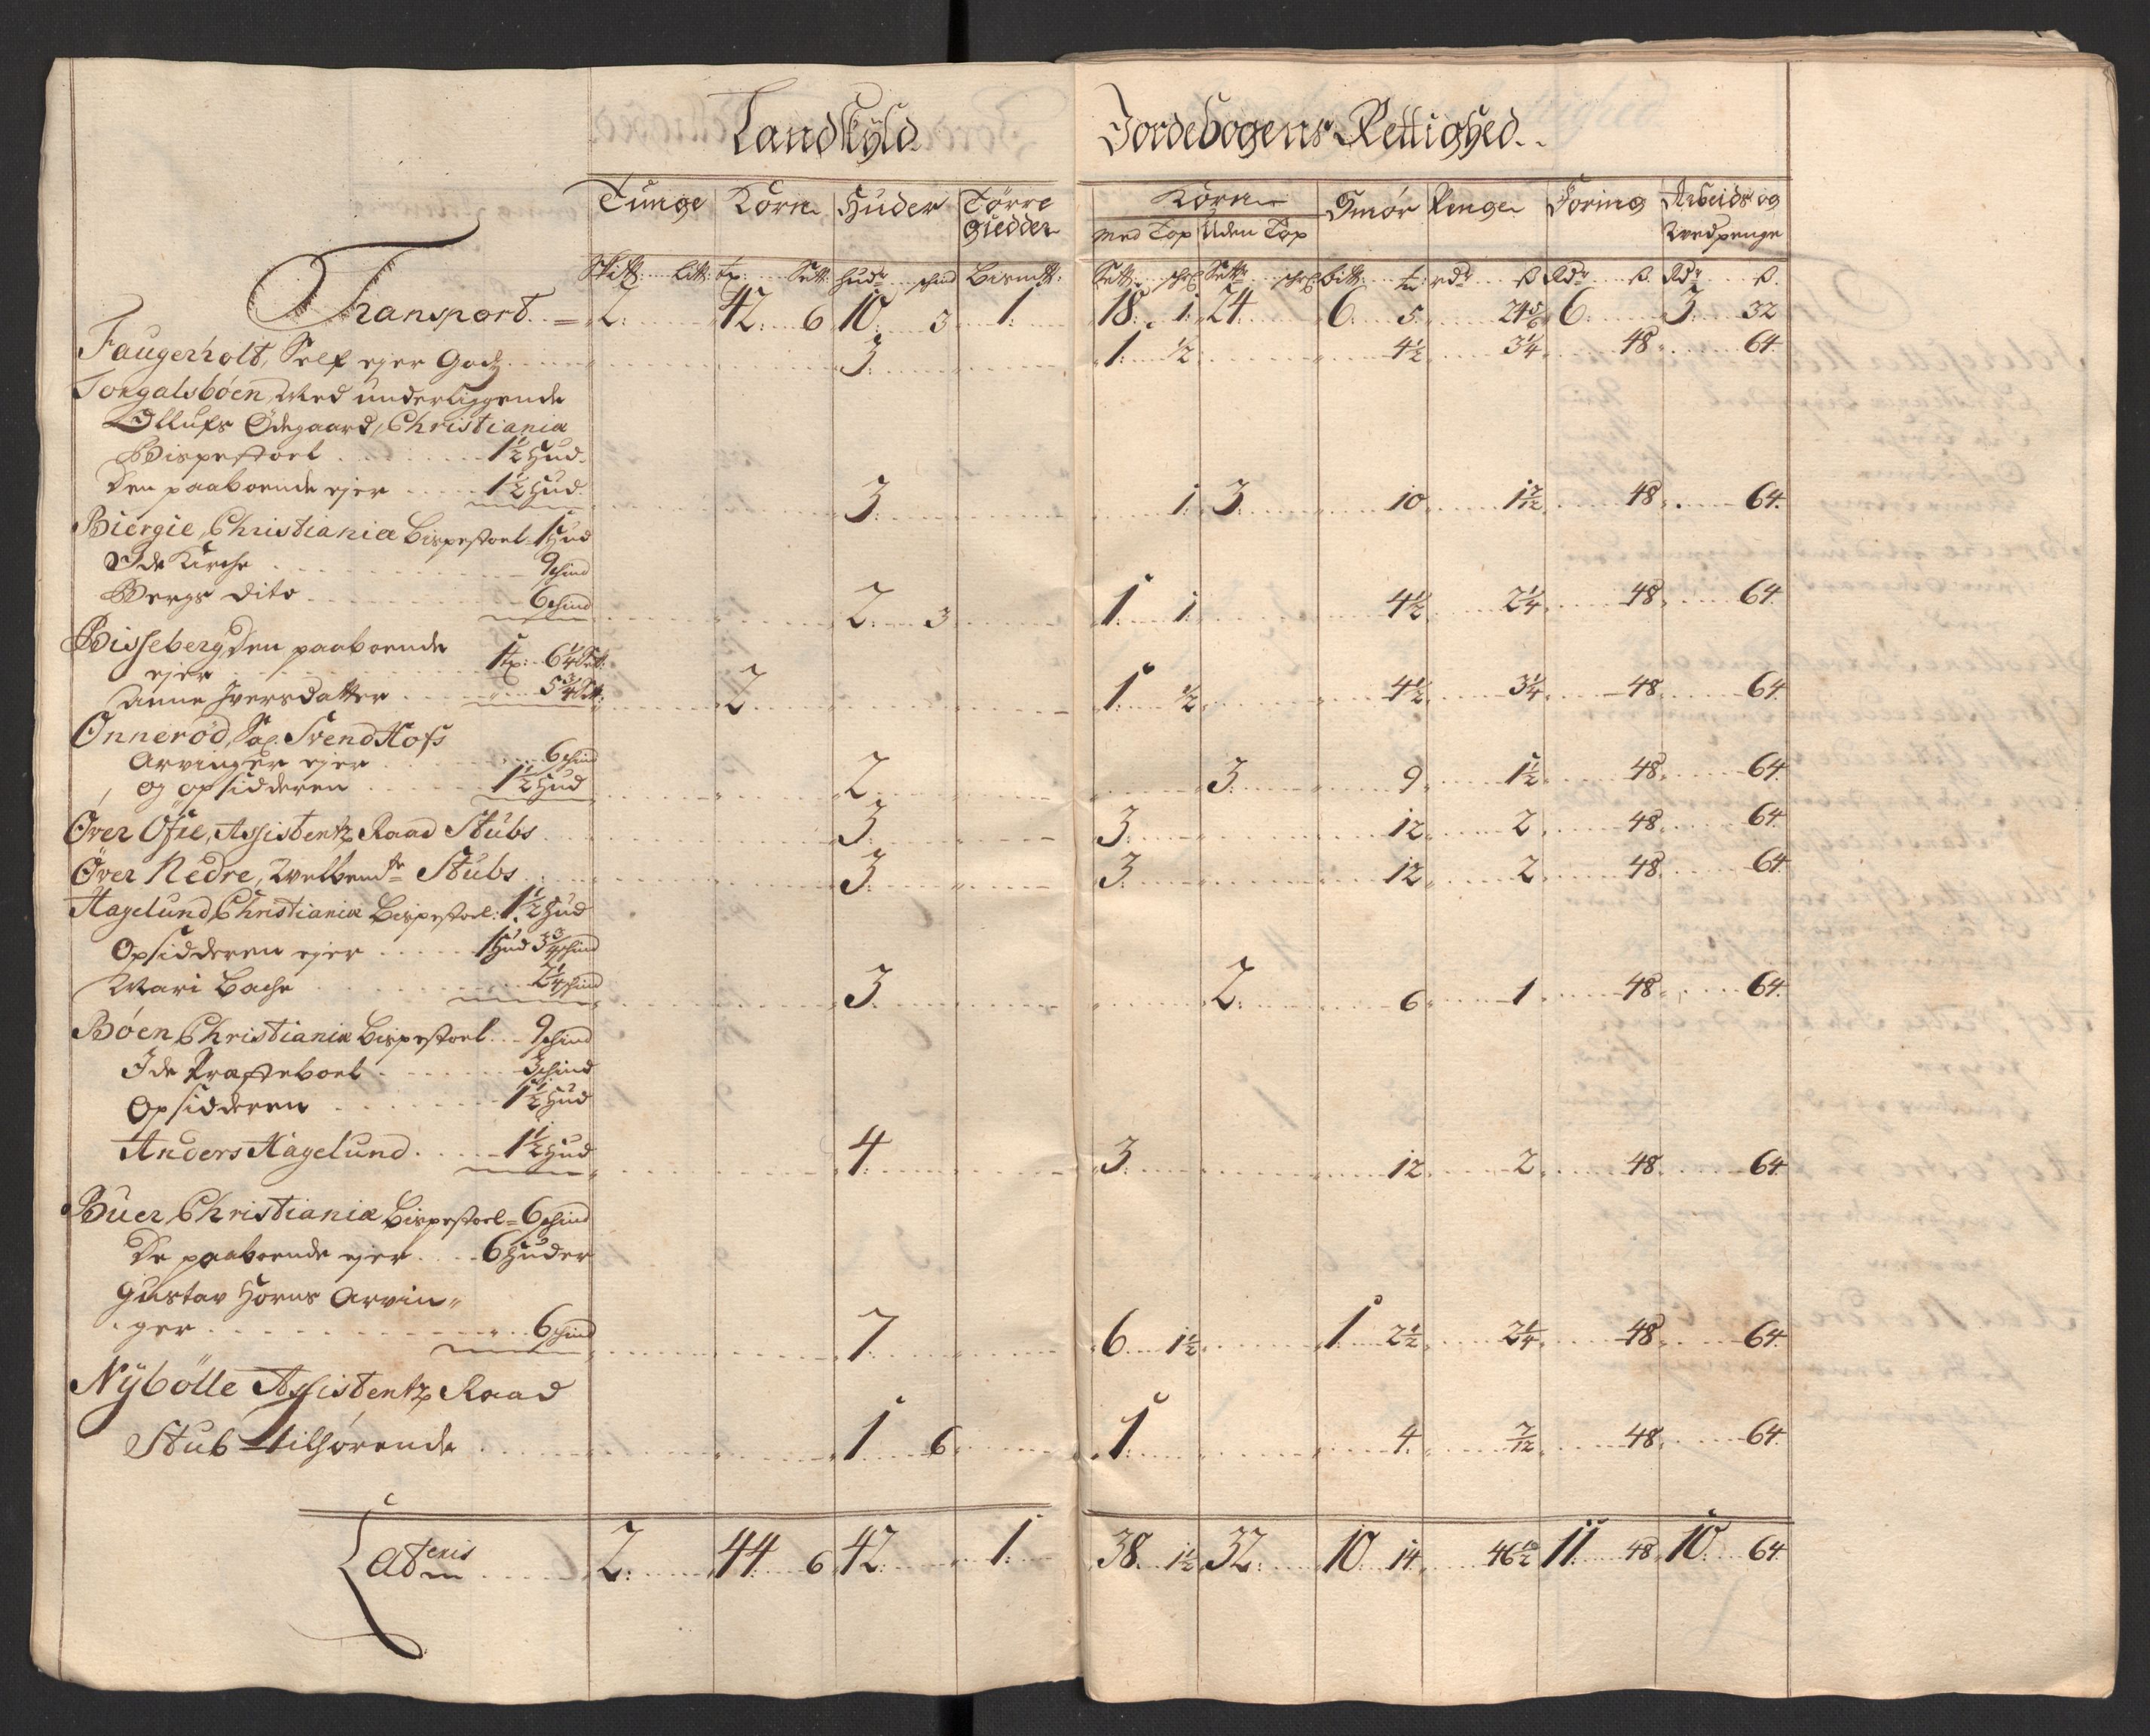 Landskÿld
Jordebogens Rettighed..
Tunge Korn Huder Tørre giedder
Korn Smør Penge Foring Arbeids og
med Top Uden Top Wedpenge
Skitt: litt: tp: Sett: Hudr schind Bismtt:
Sett: Sett bitt: rdr ß Rdr ß. Rdr ß.
Transport = 2: 42: 6 10: 3 1: 18: 1: 24 6: 5 24 5/6 6: 3: 32
Faugerholt, Self ejer Godz 3: 1: 1/2 4 1/2 3 1/4 48 64
Torgalsbøen, Med underliggende
Ollufs Ødegaard, Christiania
Bispestoel 1 1/2 Hud.
Den paaboende ejer 1 1/2 Hud. 3: 1: 3: 10 1 7/12 48 64.
Biergie, Christianiæ Bispestoel 1 Hud
Ide Kirche 9 schind
Bergs dito 6 schind 2: 3 1 1: 4 1/2 2 1/4 48 64.
Bisseberg, Den paaboende
ejer 1 tp: 6 1/4 Sett:
Anne Iversdatter 5 3/4 Sett: 2 1: 1/2 4 1/2 3 1/4 48 64.
Onnerød, Sal. Svend Hofs
Arvinger ejer 6 schind
og opsidderen 1 1/2 Hud 2: 3: 9 1 1/2 48 64.
Øver Øfre, Assistentz Raad Stubs 3: 3: 12 2 48 64.
Øver Nedre, Welbemte Stubs 3: 3: 12 2 48 64.
Hagelund, Christianiæ Bispestoel: 1 1/2 Hud
Opsidderen ejer 1 Hud 3 3/4 schind
Mari Bache 2 1/4 schind 3: 2: 6 1 48 64.
Bøen, Christianiæ Bispestoel 9 schind
Ide Præsteboel 3 schind
Opsidderen 1 1/2 Hud
Anders Hagelund 1 1/2 Hud 4: 3: 12 2 48 64
Buer, Christianiæ Bispestoel = 6 schind
De paaboende ejer 6 Huder
Gustav Horns Arvin-
ger 6 schind 7: 6 1 1/2 1 2 1/2 2 1/4 48 64.
Nÿbölle Assistentz Raad
Stub tilhørende 1 6 1: 4 7/12 48 64.
Lateris 2: 44 6 42 1: 38: 1 1/2 32: 10 14 11: 48 10: 64